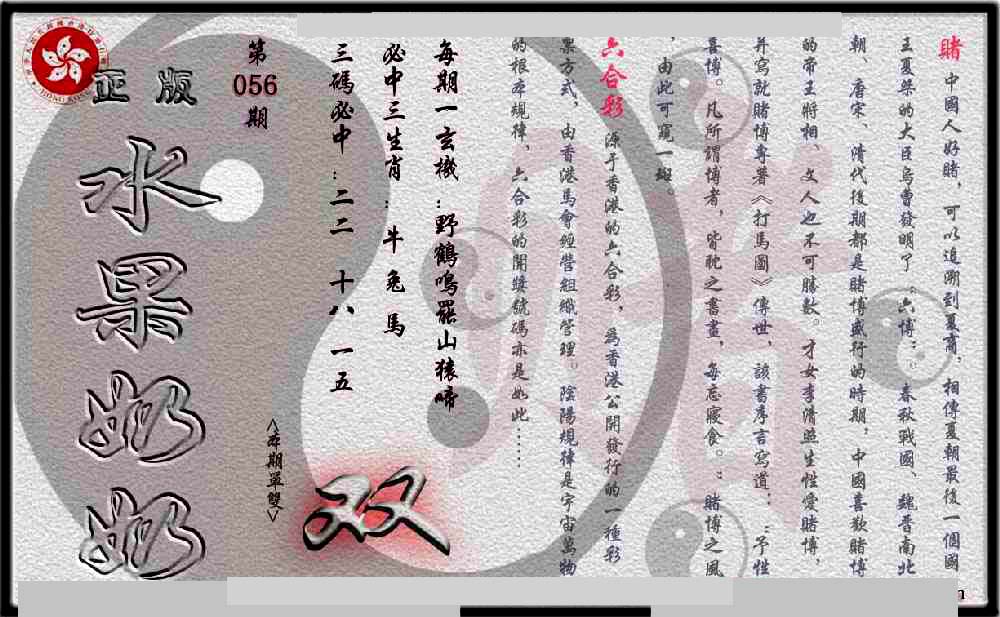 賭 中國人好賭，可以追溯到夏商．相傳夏朝最後一個國
王夏桀的大臣烏曹發明了“六博”．春秋戰國、魏晋南北
朝、唐宋、清代後期都是賭博盛行的時期，中國喜歡賭博
的帝王將相、文人也不可勝數。才女李清照生性愛賭博，
并寫就賭博專著《打馬圖》傳世，該書序言寫道：“予性
喜博。凡所謂博者，皆耽之晝，每忘寢食。”賭博之風
，由此可窺一斑。
六合彩 源于香港的六合彩，為香港公開發行的一種彩
票方式，由香港馬會經營組織管理。陰陽規律是宇宙萬物
的根本規律，六合彩的開獎號碼亦是如此……
每期一玄機：野鶴鳴罷山猿啼
必中三生肖：牛 兔 馬
三碼必中：二二 十八 一五
第
056
期
正版
水果奶奶
<本期單雙>
双